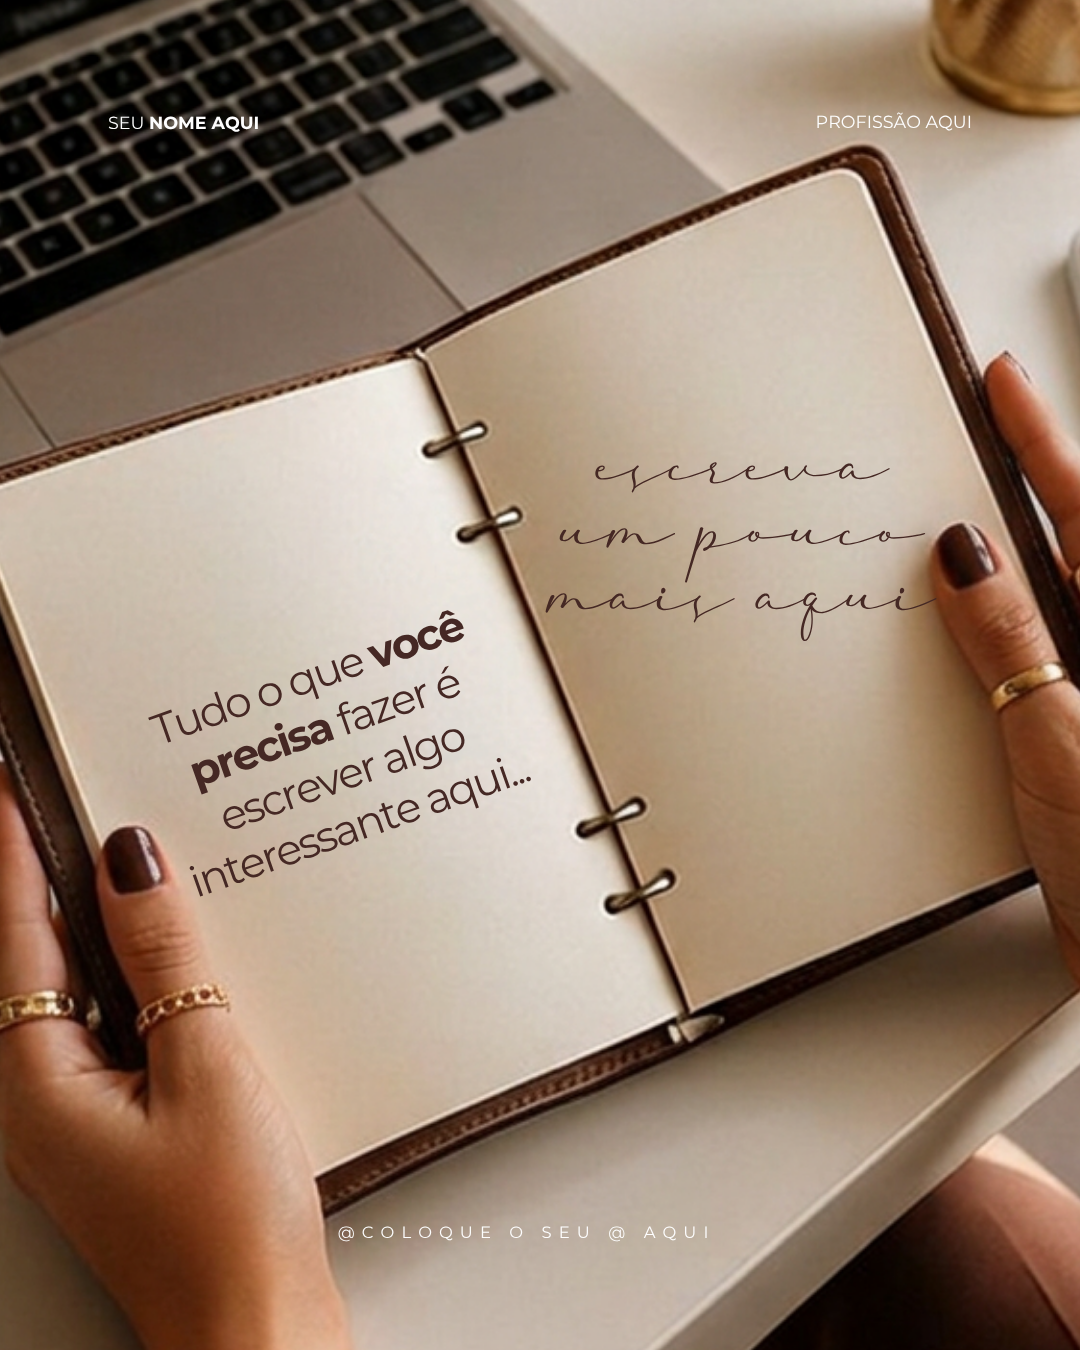 SEU NOME AQUI
PROFISSÃO AQUI
Tudo o que você
precisa fazer é
escrever algo
interessante aqui...
escreva
um pouco
mais aqui
@COLOQUE O SEU @ AQUI